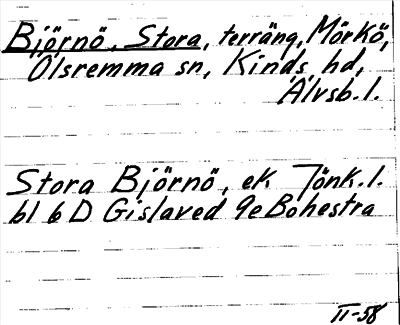 Björnö, Stora, terräng, Mörkö,
Ölsremma sn, Kinds hd,
Älvsb. l.
Stora Björnö, ek Jönk. l.
bl 6 D Gislaved 9e Bohestra
II-58